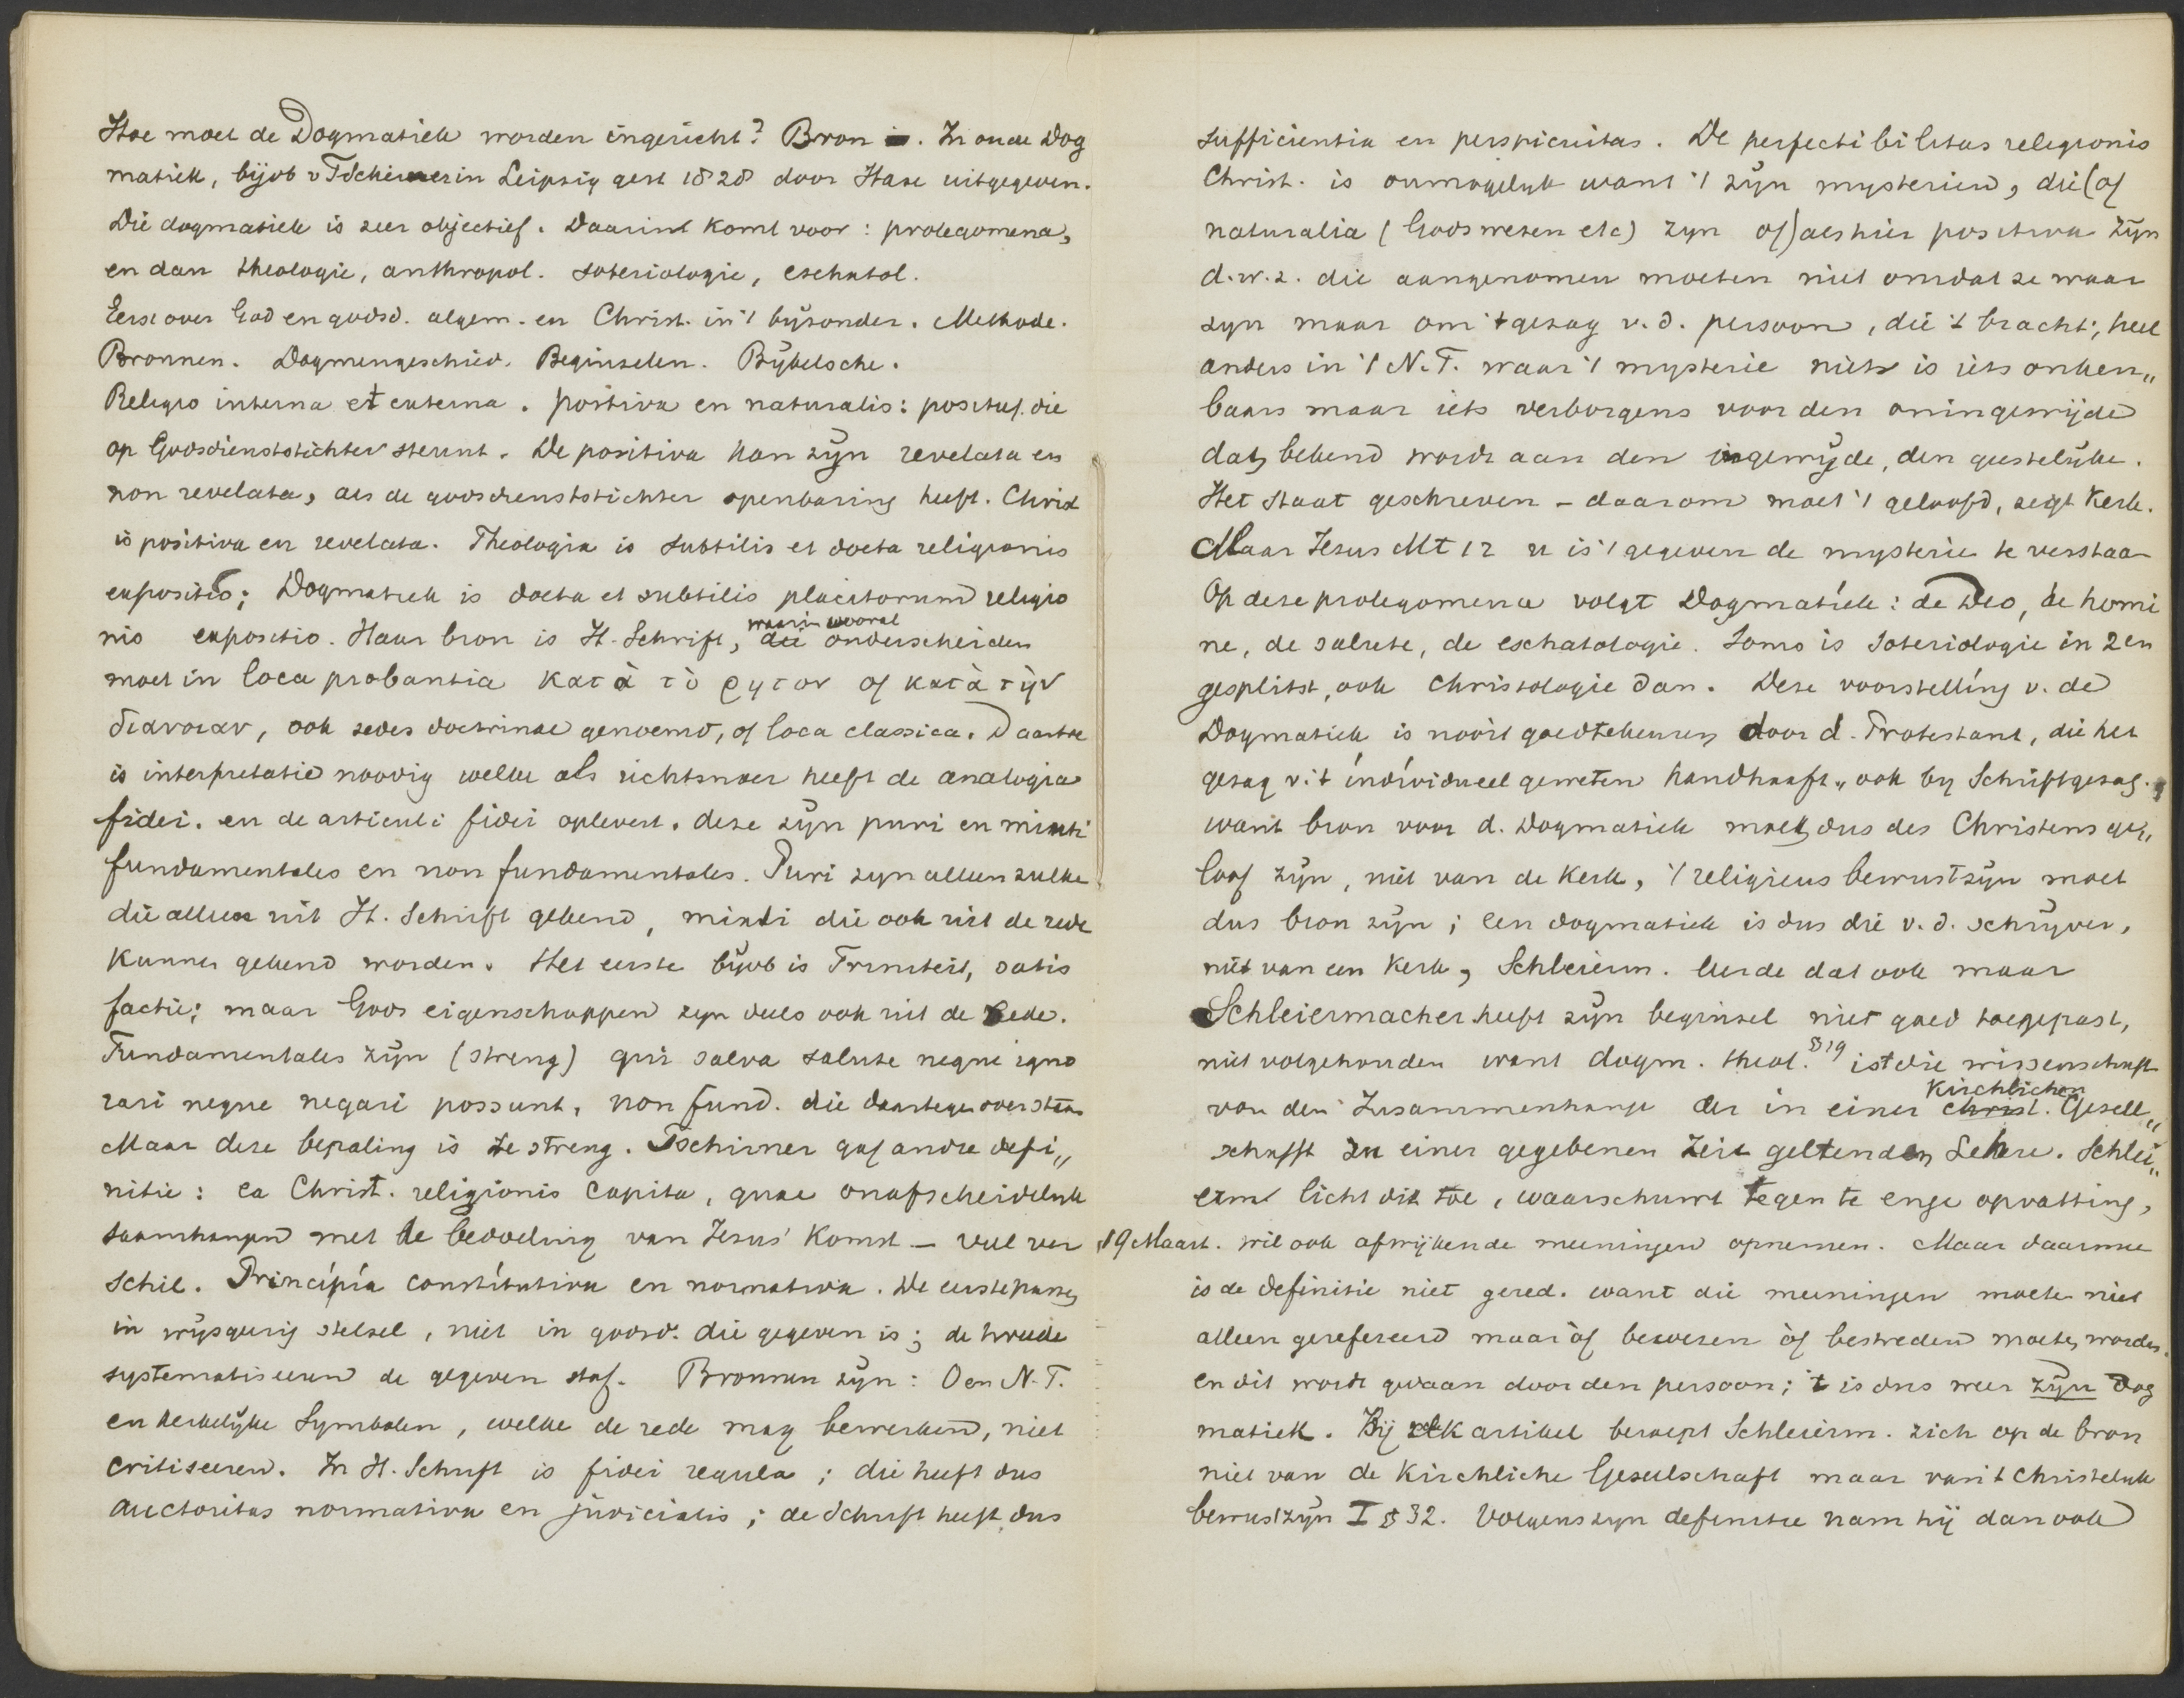 Hoe moet de Dogmatiek worden ingericht? Bron is. In oude Dog
matiek, bijvb v Tschirner in Leipzig gest 1828 door Hase uitgegeven.
Die dogmatiek is zeer objectief. Daarin komt voor: prolegomena,
en dan theologie, anthropol. soteriologie, eschatol.
Eerst over God en godsd. algem. en Christ. in 't byzonder. Methode.
Bronnen. Dogmengeschied. Beginselen. Bybelsche.
Religio interna et externa. positiva en naturalis: positief die
op Godsdienststichter steunt. De positiva kan zyn revelata en
non revelata, als de godsdienststichter openbaring heeft. Christ
is positiva en revelata. Theologia is subtilis et docta religionis
expositio; Dogmatiek is docta et subtilis placitorum religio
nis expositio. Haar bron is H. Schrift, die waarin vooral onderscheiden
moet in loca probantia κατὰ τὸ ῥητον of κατὰ τὴν
διανοιαν, ook sedes doctrinae genoemd, of loca classica. Daartoe
is interpretatie noodig welke als richtsnoer heeft de analogia
fidei. en de articuli fidei oplevert. deze zyn puri en mixti
fundamentales en non fundamentales. Puri zyn alleen zulke
die alleen uit H. Schrift gekend, mixti die ook uit de rede
kunnen gekend worden. Het eerste byvb is Triniteit, satis
factie; maar Gods eigenschappen zyn deels ook uit de Rede.
Fundamentales zyn (streng) qui salva salute neque igno
rari neque negari possunt, non fund. die daartegenover staan
Maar deze bepaling is te streng. Tschirner gaf andre defi„
nitie: ea Christ. religionis capita, quae onafscheidelyk
saamhangen met de bedoeling van Jezus' komst – veel ver
schil. Principia constitutiva en normativa. De eerste passen
in wysgeerig stelsel, niet in godsd. die gegeven is; de tweede
systematiseeren de gegeven stof. Bronnen zyn: O en N.T.
en kerkelyke Symbolen, welke de rede mag bewerken, niet
critiseeren. In H. Schrift is fidei regula; die heeft dus
auctoritas normativa en judicialis; de Schrift heeft dus
sufficientia en perspicuitas. De perfectibilitas religionis
Christ. is onmogelyk want 't zyn mysterien, die (of
naturalia (Gods wezen etc) zyn of) als hier positiva zyn
d.w.z. die aangenomen moeten niet omdat ze waar
zyn maar om 't gezag v. d. persoon, die 't bracht; heel
anders in 't N.T. waar 't mysterie niet is iets onken„
baars maar iets verborgens voor den oningewijde
dat bekend wordt aan den ingewyde, den geestelyke.
Het staat geschreven – daarom moet 't geloofd, zegt Kerk.
Maar Jezus Mt 12 u is 't gegeven de mysterie te verstaan
Op deze prolegomena volgt Dogmatiek: de Deo, de homi
ne, de salute, de eschatologie. Soms is Soteriologie in 2en
gesplitst, ook christologie dan. Deze voorstelling v. de
Dogmatiek is nooit goedtekeuren door d. Protestant, die het
gezag v. 't individueel geweten handhaaft, ook by Schriftgezag.
want bron voor d. Dogmatiek moet dus des Christens ge„
loof zyn, niet van de kerk, 't religieus bewustzyn moet
dus bron zyn; een dogmatiek is dus die v. d. schryver,
niet van een kerk, Schleierm. leerde dat ook maar
Schleiermacher heeft zyn beginsel niet goed toegepast,
niet volgehouden want dogm. theol. §19 ist die wissenschaft
von den Zusammenhange der in einer christ. kirchlichen Gesell„
schafft zu einer gegebenen Zeit geltenden Lehre. Schlei„
erm licht dit toe, waarschuwt tegen te enge opvatting,
19 Maart. wil ook afwijkende meeningen opnemen. Maar daarmee
is de definitie niet gered. want die meeningen moeten niet
alleen gerefereerd maar òf bewezen òf bestreden moeten worden.
en dit wordt gedaan door den persoon; 't is dus weer zyn Dog
matiek. By elk artikel beroept Schleierm. zich op de bron
niet van de kirchliche Gesellschaft maar van 't christelyk
bewustzyn I § 32. Volgens zyn definitie nam hij dan ook